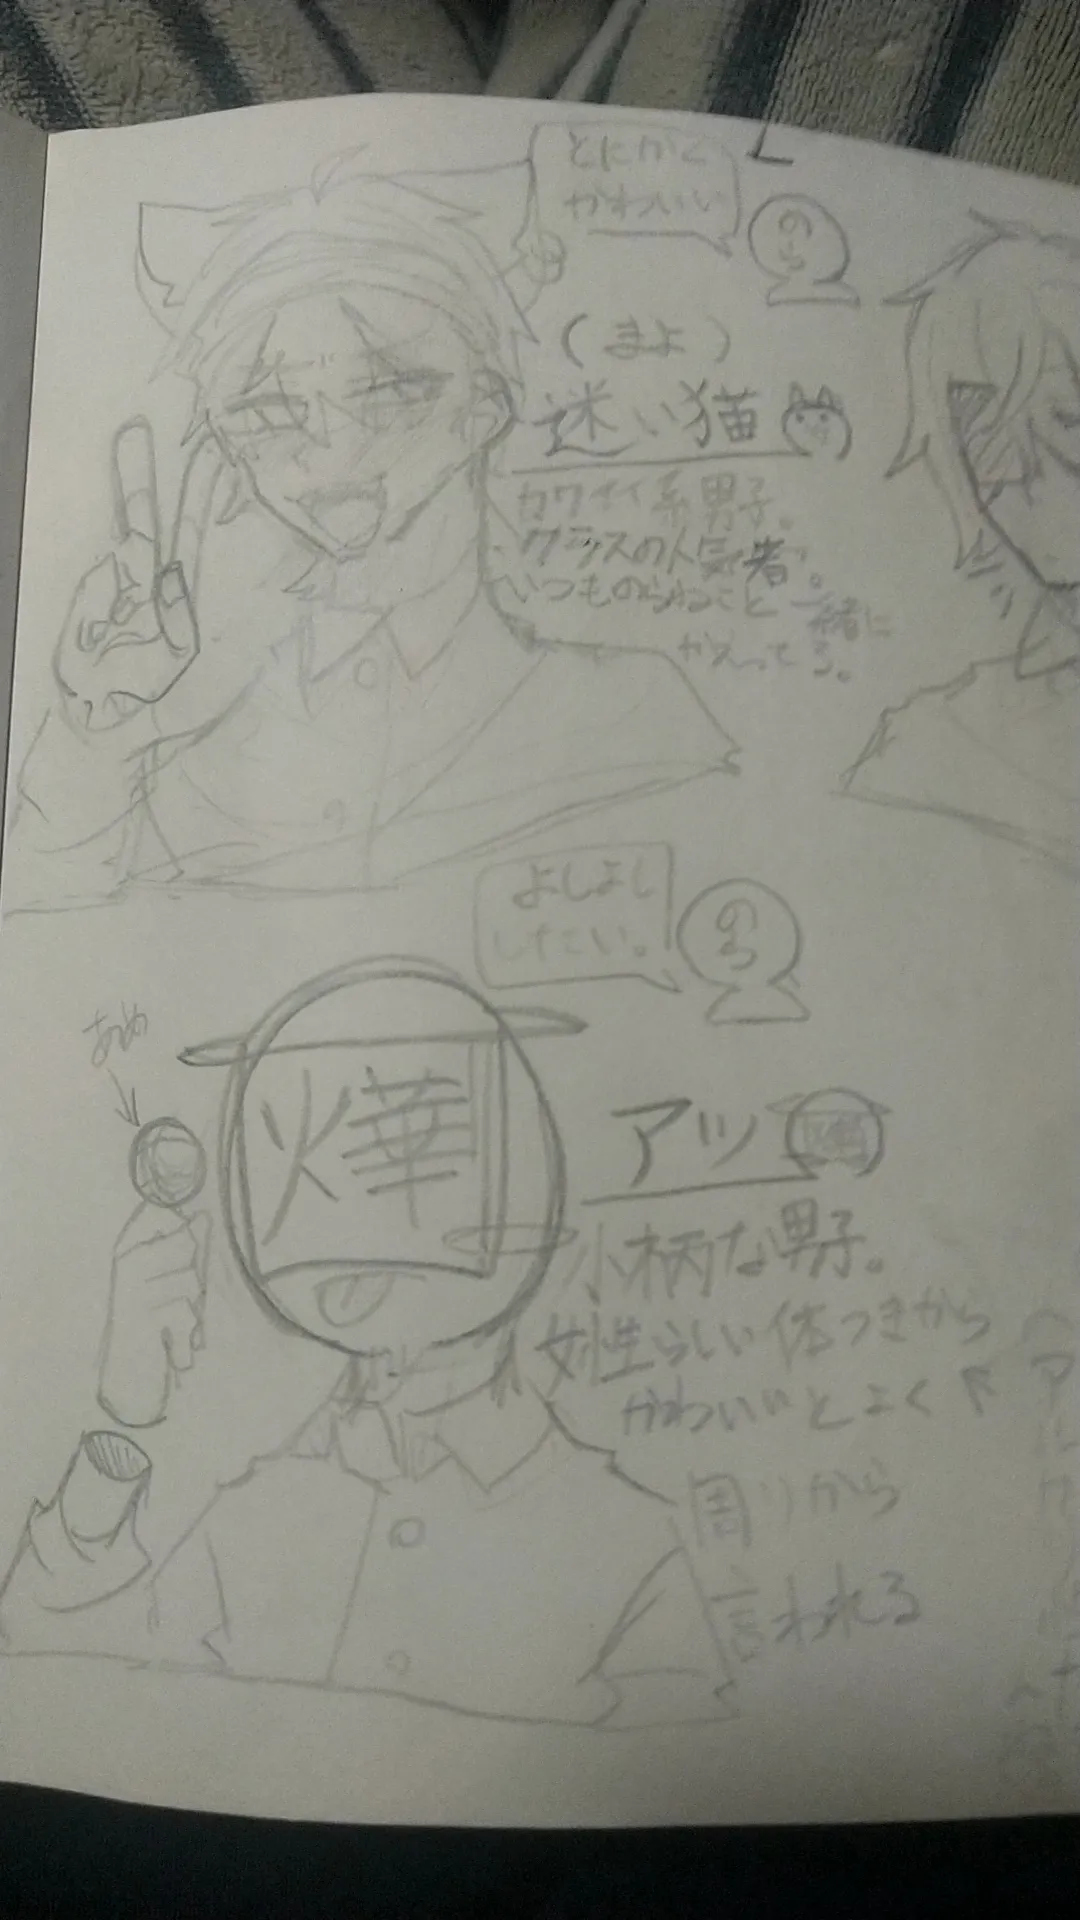 とにかく
かわいい
のら
(まよ)
迷い猫
カワイイ系男子。
クラスの人気者。
いつものらねこと一緒に
かえってる。
よしよし
したい。
のら
あめ
燁
アツ
小柄な男子。
女性らしい体つきから
かわいいとよく
周りから
言われる